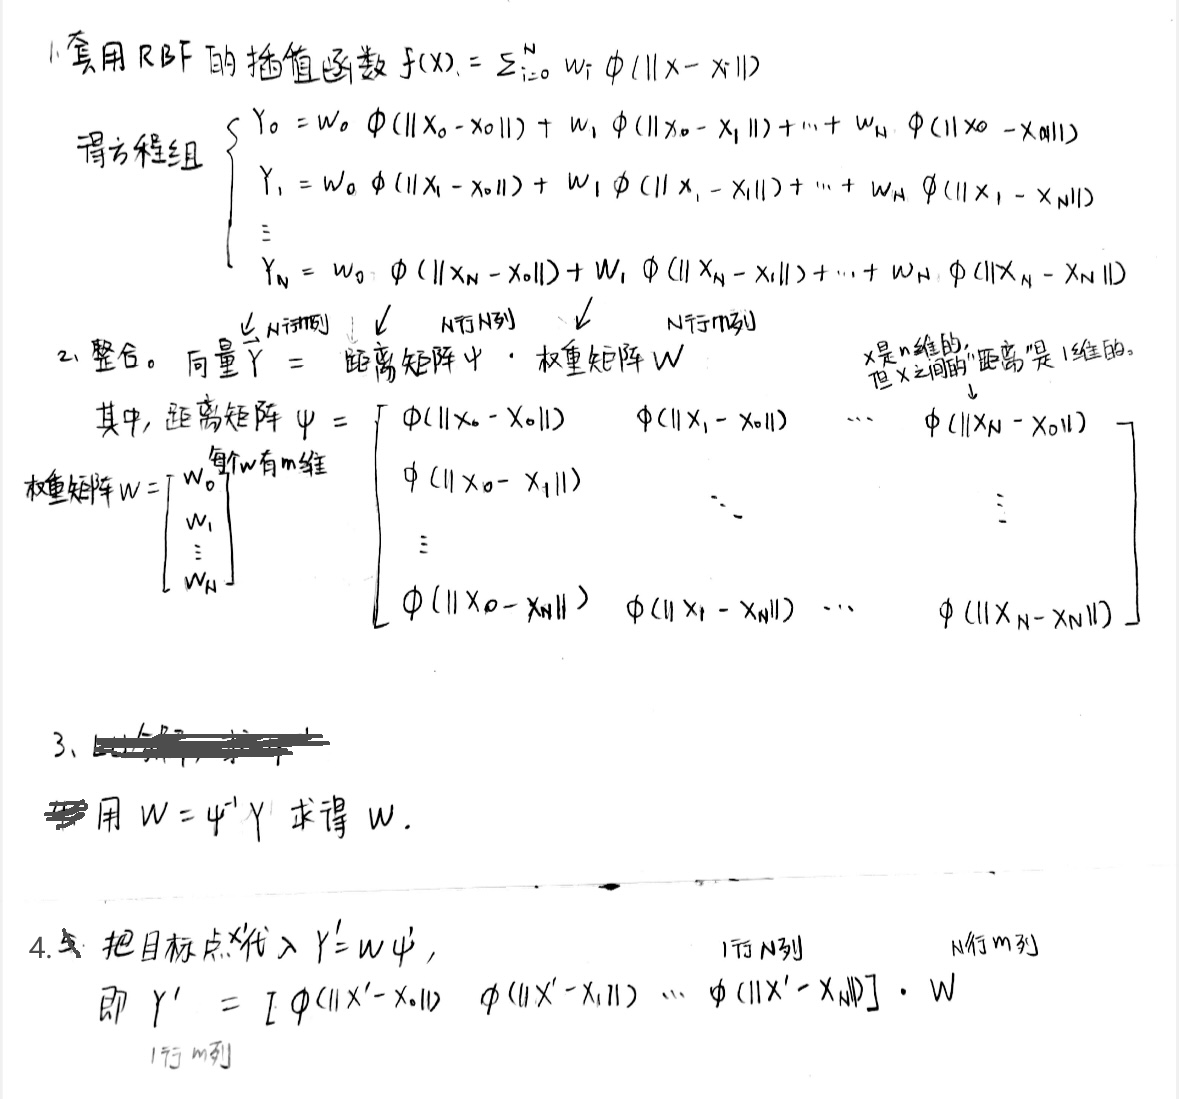 1. 套用RBF的插值函数 f(X) = Σ_{i=0}^{N} w_i φ(||X - X_i||)
得方程组
Y_0 = W_0 φ(||X_0 - X_0||) + W_1 φ(||X_0 - X_1||) + ... + W_N φ(||X_0 - X_N||)
Y_1 = W_0 φ(||X_1 - X_0||) + W_1 φ(||X_1 - X_1||) + ... + W_N φ(||X_1 - X_N||)
⋮
Y_N = W_0 φ(||X_N - X_0||) + W_1 φ(||X_N - X_1||) + ... + W_N φ(||X_N - X_N||)
↙ N行m列 ↓ ↙ N行N列 ↙ N行m列
2、整合。向量Y = 距离矩阵ψ · 权重矩阵W
X是n维的,
但X之间的"距离"是1维的。
↓
其中, 距离矩阵ψ = [ φ(||X_0 - X_0||) φ(||X_1 - X_0||) ... φ(||X_N - X_0||)
φ(||X_0 - X_1||) ⋱ ⋮
⋮
φ(||X_0 - X_N||) φ(||X_1 - X_N||) ... φ(||X_N - X_N||) ]
权重矩阵W = [ W_0
W_1
⋮
W_N ]
每个w有m维
3、
用 W = ψ^{-1} Y 求得 W.
4. 把目标点X'代入 Y' = Wψ',
1行N列 N行m列
即 Y' = [ φ(||X' - X_0||) φ(||X' - X_1||) ... φ(||X' - X_N||) ] · W
1行m列